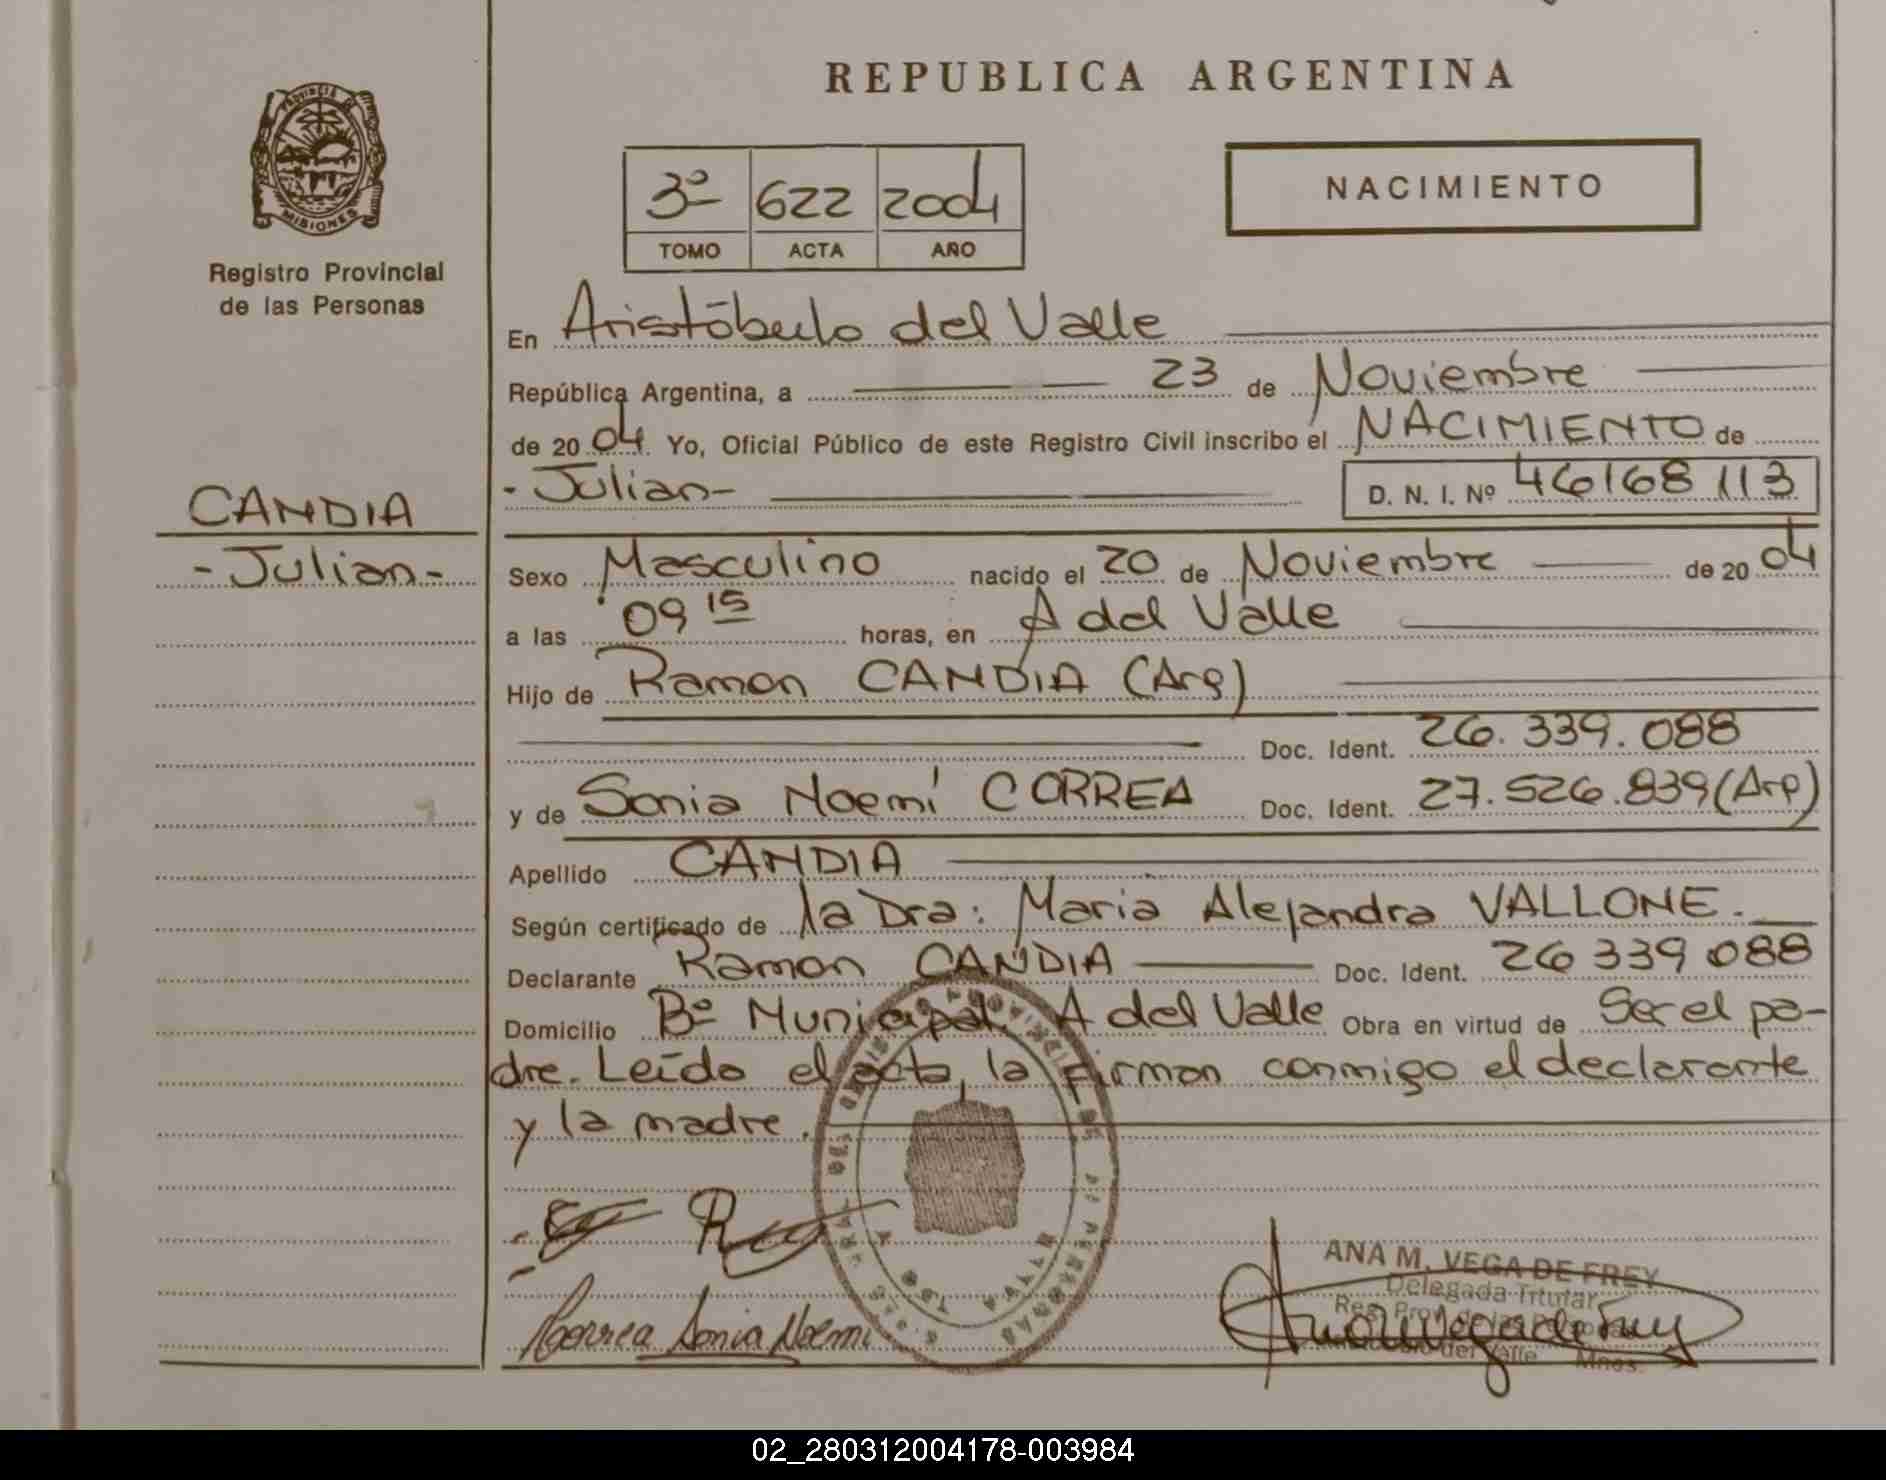 REPUBLICA ARGENTINA
PROVINCIA DE
MISIONES
Registro Provincial
de las Personas
3º 622 2004
TOMO ACTA AÑO
NACIMIENTO
En Aristóbulo del Valle
República Argentina, a 23 de Noviembre
de 2004. Yo, Oficial Público de este Registro Civil inscribo el NACIMIENTO de
-Julian- D. N. I. Nº 46168113
CANDIA
-Julian-
Sexo Masculino nacido el 20 de Noviembre de 2004
a las 09 15 horas, en A del Valle
Hijo de Ramon CANDIA (Arg)
Doc. Ident. 26.339.088
y de Sonia Noemí CORREA Doc. Ident. 27.526.839 (Arg)
Apellido CANDIA
Según certificado de la Dra: Maria Alejandra VALLONE.
Declarante Ramon CANDIA Doc. Ident. 26 339 088
Domicilio Bº Municipal. A del Valle Obra en virtud de Ser el pa-
dre. Leído el acta, la firman conmigo el declarante
y la madre.
Correa Sonia Noemi
ANA M. VEGA DE FREY
Delegada Titular
Reg. Prov. de las Personas
del Valle Mnes.
02_280312004178-003984